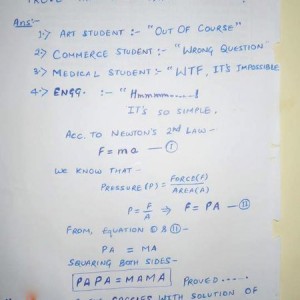 PROVE
Ans:-
1:-) ART STUDENT :- "OUT OF COURSE"
2:-) COMMERCE STUDENT :- "WRONG QUESTION
3:-) MEDICAL STUDENT :- "WTF, IT'S IMPOSSIBLE
4:-) ENGG. :- "Hmmmm.....!
IT'S SO SIMPLE.
ACC. TO NEWTON'S 2nd LAW -
F = ma — (I)
WE KNOW THAT -
PRESSURE (P) = FORCE(F) / AREA(A)
P = F/A ⇒ F = PA — (II)
FROM, EQUATION (I) & (II) -
PA = MA
SQUARING BOTH SIDES -
PAPA = MAMA PROVED.....
WITH SOLUTION OF